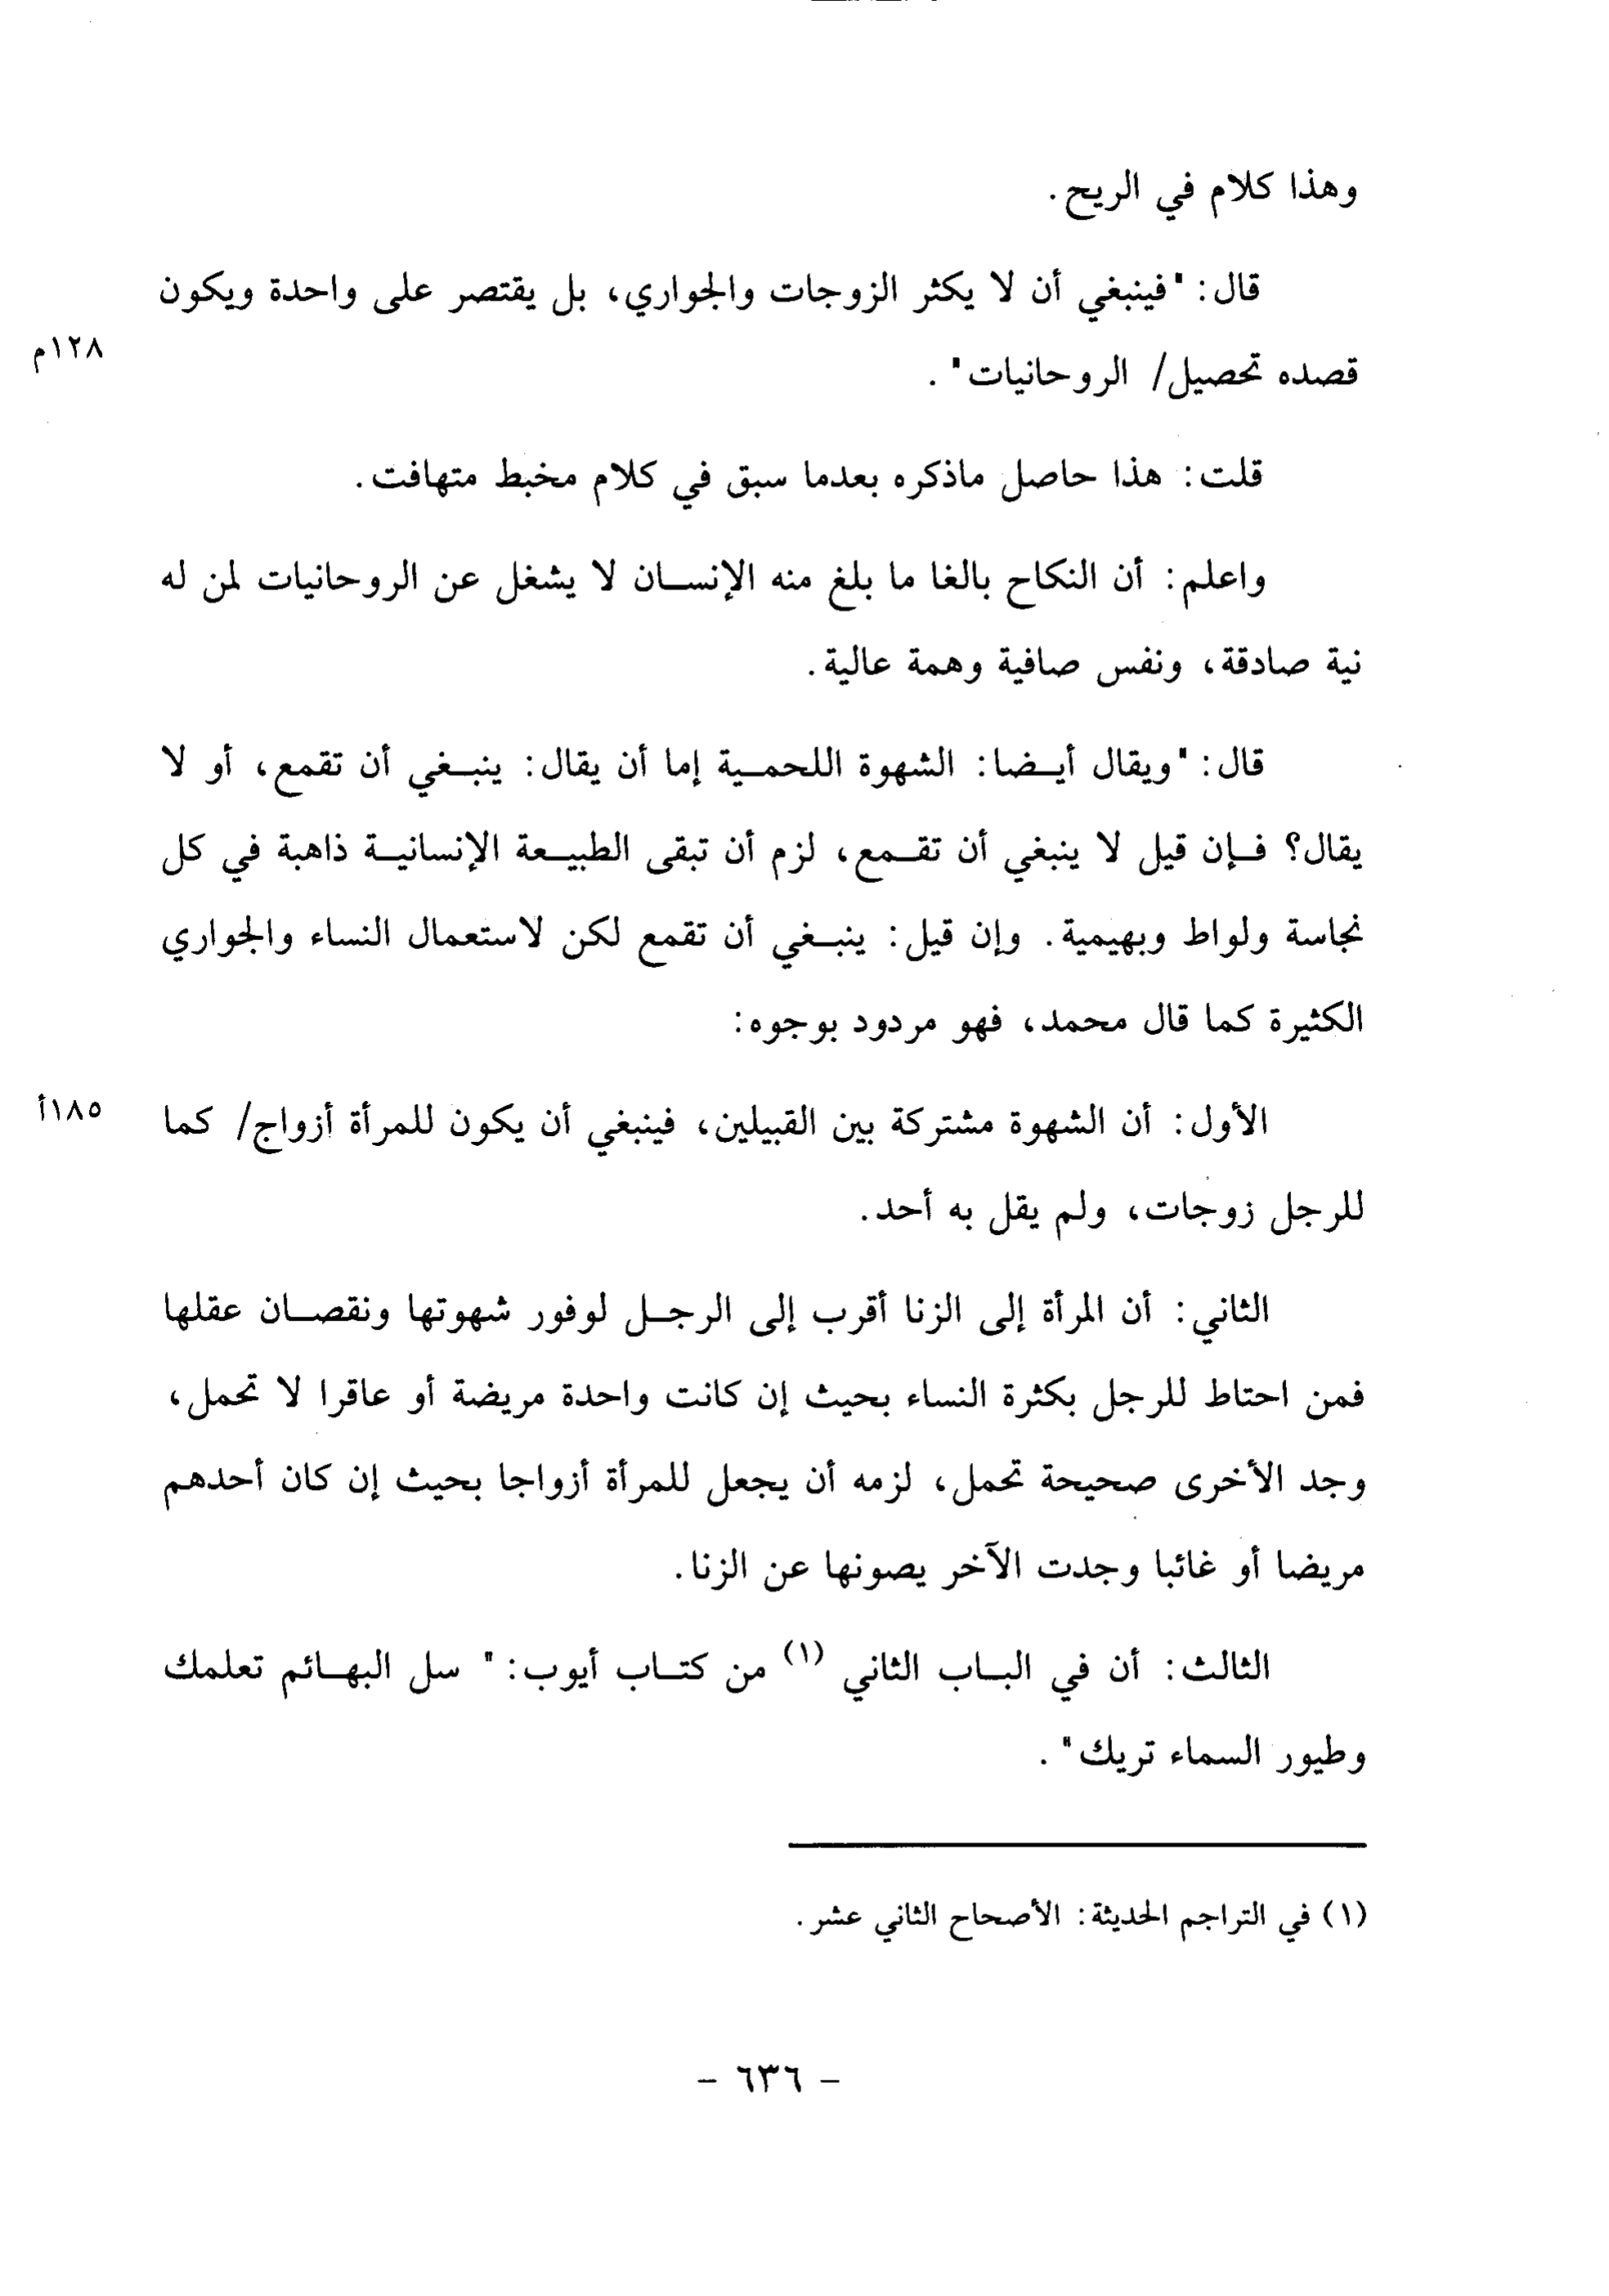 وهذا كلام في الريح.
قال: "فينبغي أن لا يكثر الزوجات والجواري، بل يقتصر على واحدة ويكون
١٢٨م
قصده تحصيل/ الروحانيات".
قلت: هذا حاصل ماذكره بعدما سبق في كلام مخبط متهافت.
واعلم: أن النكاح بالغا ما بلغ منه الإنسان لا يشغل عن الروحانيات لمن له
نية صادقة، ونفس صافية وهمة عالية.
قال: "ويقال أيضا: الشهوة اللحمية إما أن يقال: ينبغي أن تقمع، أو لا
يقال؟ فإن قيل لا ينبغي أن تقمع، لزم أن تبقى الطبيعة الإنسانية ذاهبة في كل
نجاسة ولواط وبهيمية. وإن قيل: ينبغي أن تقمع لكن لاستعمال النساء والجواري
الكثيرة كما قال محمد، فهو مردود بوجوه:
الأول: أن الشهوة مشتركة بين القبيلين، فينبغي أن يكون للمرأة أزواج/ كما
١٨٥أ
للرجل زوجات، ولم يقل به أحد.
الثاني: أن المرأة إلى الزنا أقرب إلى الرجل لوفور شهوتها ونقصان عقلها
فمن احتاط للرجل بكثرة النساء بحيث إن كانت واحدة مريضة أو عاقرا لا تحمل،
وجد الأخرى صحيحة تحمل، لزمه أن يجعل للمرأة أزواجا بحيث إن كان أحدهم
مريضا أو غائبا وجدت الآخر يصونها عن الزنا.
الثالث: أن في الباب الثاني (١) من كتاب أيوب: " سل البهائم تعلمك
وطيور السماء تريك".
(١) في التراجم الحديثة: الأصحاح الثاني عشر.
- ٦٣٦ -